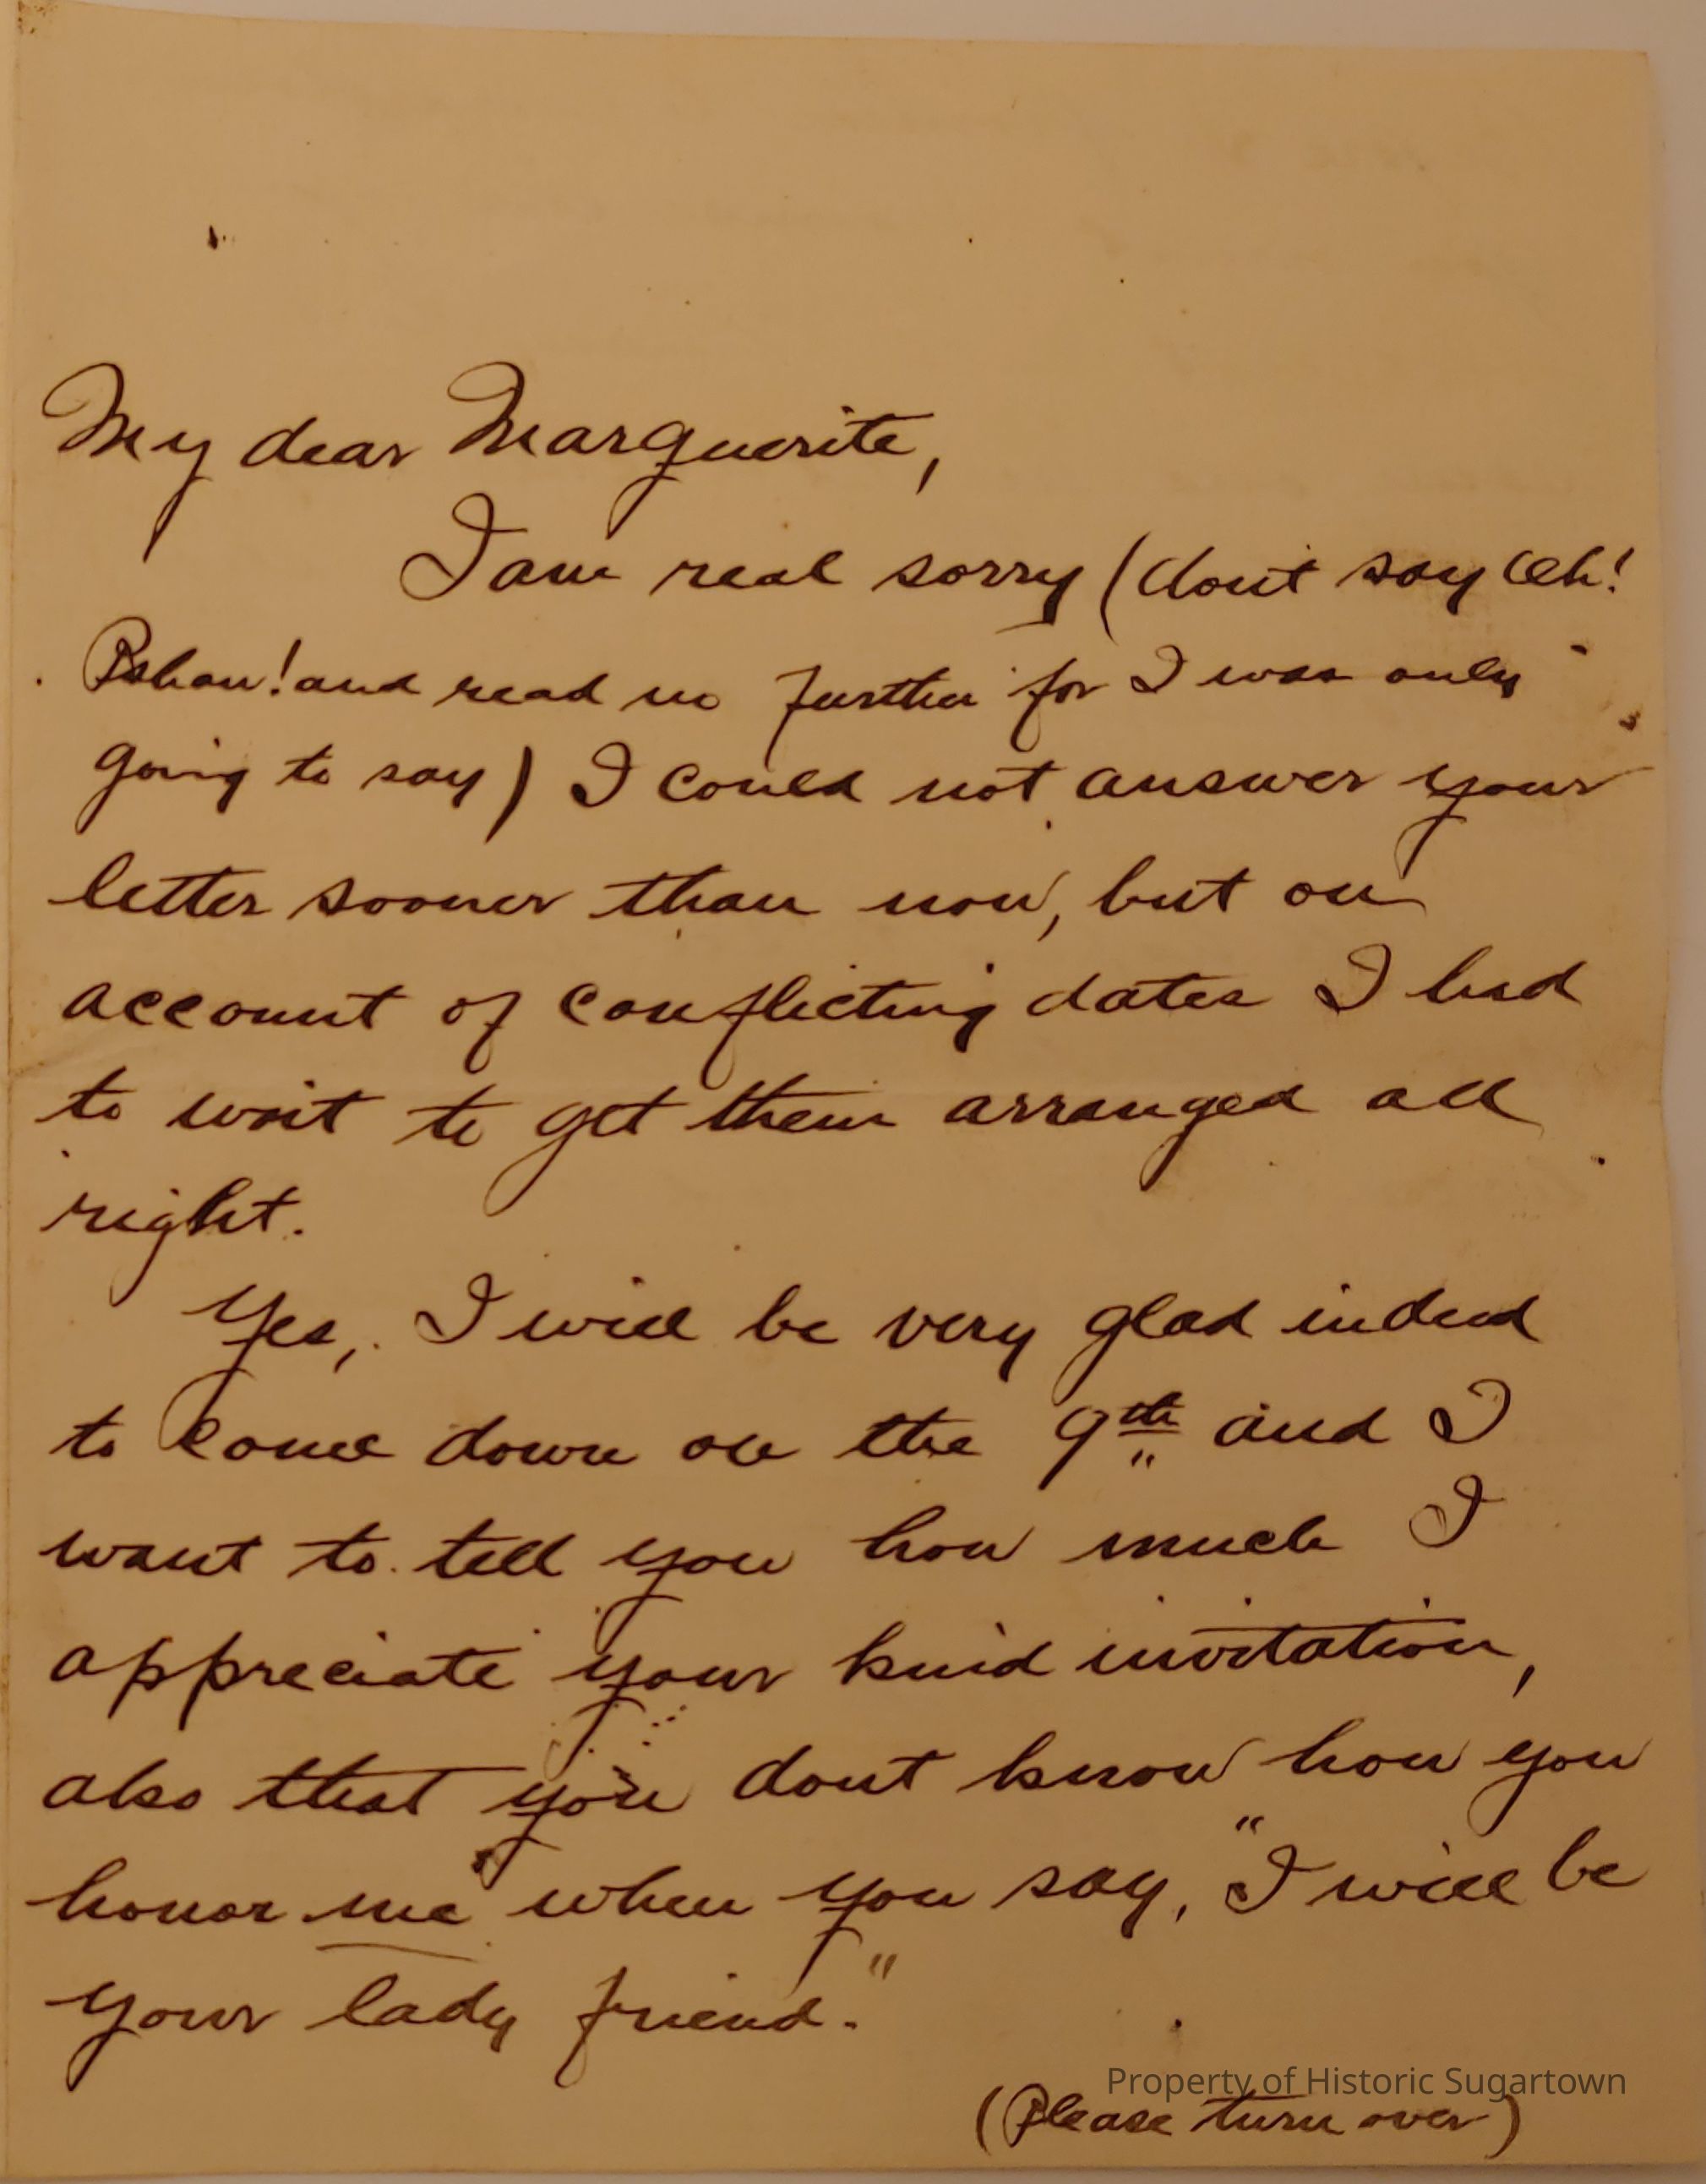 My dear Marguerite,
I am real sorry (dont say Oh!
Pshaw! and read no further for I was only
going to say) I could not answer your
letter sooner than now, but on
account of conflicting dates I had
to wait to get them arranged all
right.
Yes, I will be very glad indeed
to come down on the 9th and I
want to tell you how much I
appreciate your kind invitation,
also that you dont know how you
honor me when you say, "I will be
your lady friend."
(Please turn over)
Property of Historic Sugartown